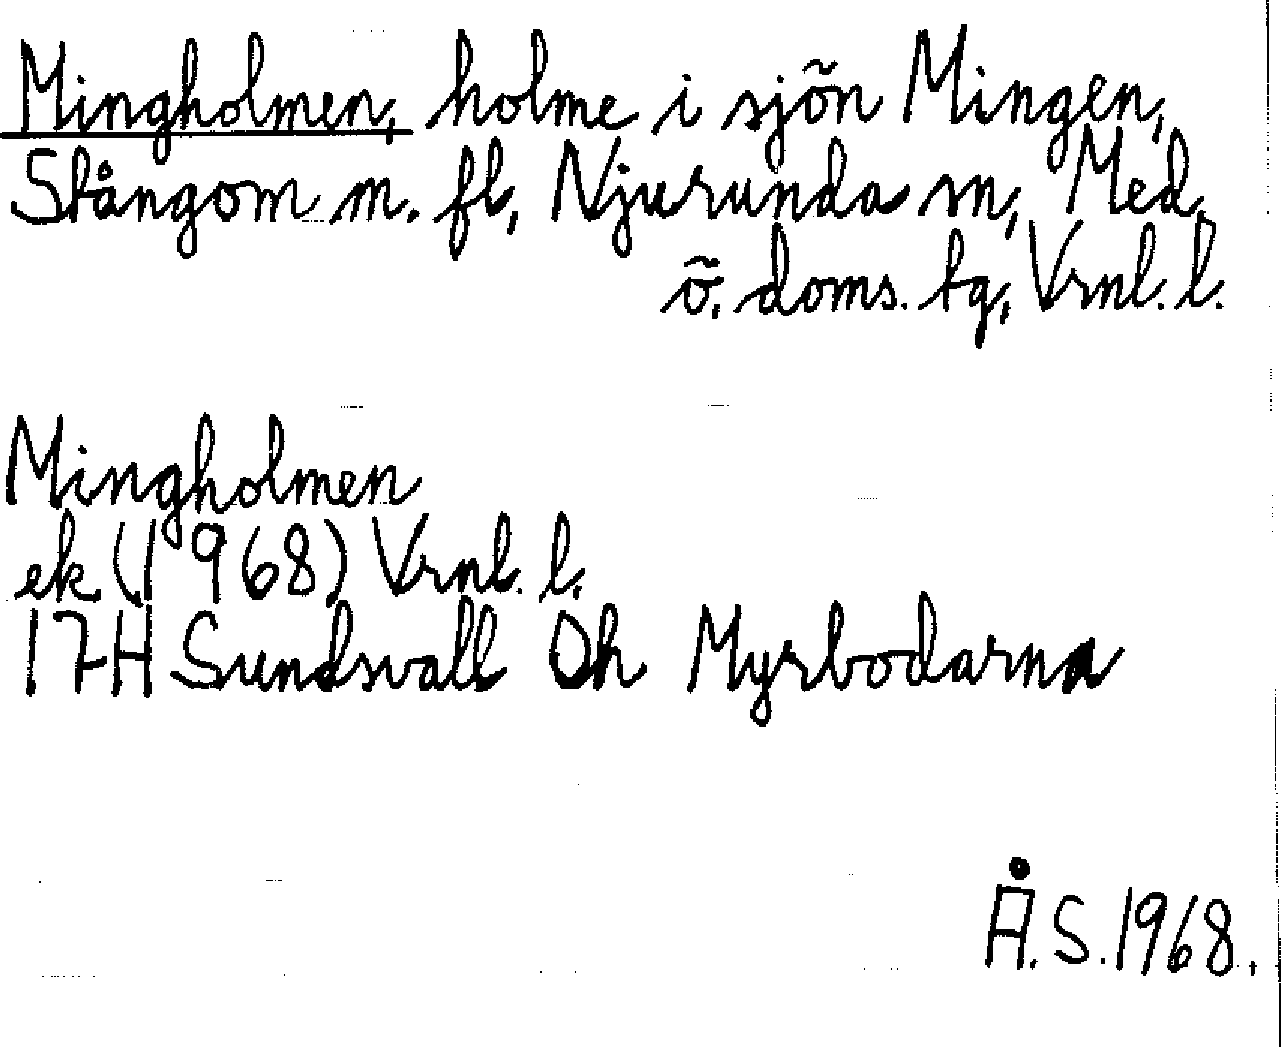 Mingholmen, holme i sjön Mingen,
Stångom m. fl, Njurunda sn, Med.
ö. doms. tg, Vrnl. l.
Mingholmen
ek (1968) Vrnl. l.
17H Sundsvall Oh Myrbodarna
Å.S. 1968.